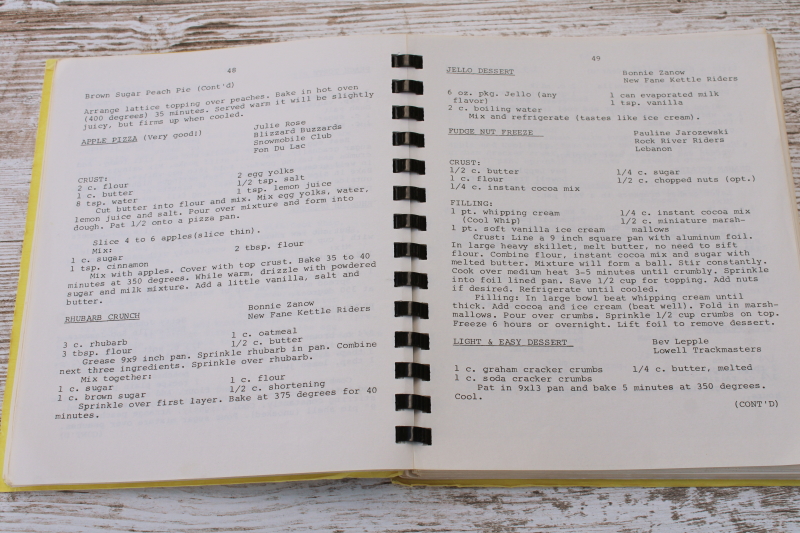 48
Brown Sugar Peach Pie (Cont'd)
Arrange lattice topping over peaches. Bake in hot oven
(400 degrees) 35 minutes. Served warm it will be slightly
juicy, but firms up when cooled.
APPLE PIZZA (Very good!) Julie Rose
Blizzard Buzzards
Snowmobile Club
Fon Du Lac
CRUST:
2 c. flour 2 egg yolks
1 c. butter 1/2 tsp. salt
8 tsp. water 1 tsp. lemon juice
Cut butter into flour and mix. Mix egg yolks, water,
lemon juice and salt. Pour over mixture and form into
dough. Pat 1/2 onto a pizza pan.
Slice 4 to 6 apples(slice thin).
Mix:
1 c. sugar 2 tbsp. flour
1 tsp. cinnamon
Mix with apples. Cover with top crust. Bake 35 to 40
minutes at 350 degrees. While warm, drizzle with powdered
sugar and milk mixture. Add a little vanilla, salt and
butter.
RHUBARB CRUNCH Bonnie Zanow
New Fane Kettle Riders
3 c. rhubarb 1 c. oatmeal
3 tbsp. flour 1/2 c. butter
Grease 9x9 inch pan. Sprinkle rhubarb in pan. Combine
next three ingredients. Sprinkle over rhubarb.
Mix together:
1 c. sugar 1 c. flour
1 c. brown sugar 1/2 c. shortening
Sprinkle over first layer. Bake at 375 degrees for 40
minutes.
49
JELLO DESSERT Bonnie Zanow
New Fane Kettle Riders
6 oz. pkg. Jello (any 1 can evaporated milk
flavor) 1 tsp. vanilla
2 c. boiling water
Mix and refrigerate (tastes like ice cream).
FUDGE NUT FREEZE Pauline Jarozewski
Rock River Riders
Lebanon
CRUST:
1/2 c. butter 1/4 c. sugar
1 c. flour 1/2 c. chopped nuts (opt.)
1/4 c. instant cocoa mix
FILLING:
1 pt. whipping cream 1/4 c. instant cocoa mix
(Cool Whip) 1/2 c. miniature marsh-
1 pt. soft vanilla ice cream mallows
Crust: Line a 9 inch square pan with aluminum foil.
In large heavy skillet, melt butter, no need to sift
flour. Combine flour, instant cocoa mix and sugar with
melted butter. Mixture will form a ball. Stir constantly.
Cook over medium heat 3-5 minutes until crumbly. Sprinkle
into foil lined pan. Save 1/2 cup for topping. Add nuts
if desired. Refrigerate until cooled.
Filling: In large bowl beat whipping cream until
thick. Add cocoa and ice cream (beat well). Fold in marsh-
mallows. Pour over crumbs. Sprinkle 1/2 cup crumbs on top.
Freeze 6 hours or overnight. Lift foil to remove dessert.
LIGHT & EASY DESSERT Bev Lepple
Lowell Trackmasters
1 c. graham cracker crumbs 1/4 c. butter, melted
1 c. soda cracker crumbs
Pat in 9x13 pan and bake 5 minutes at 350 degrees.
Cool.
(CONT'D)